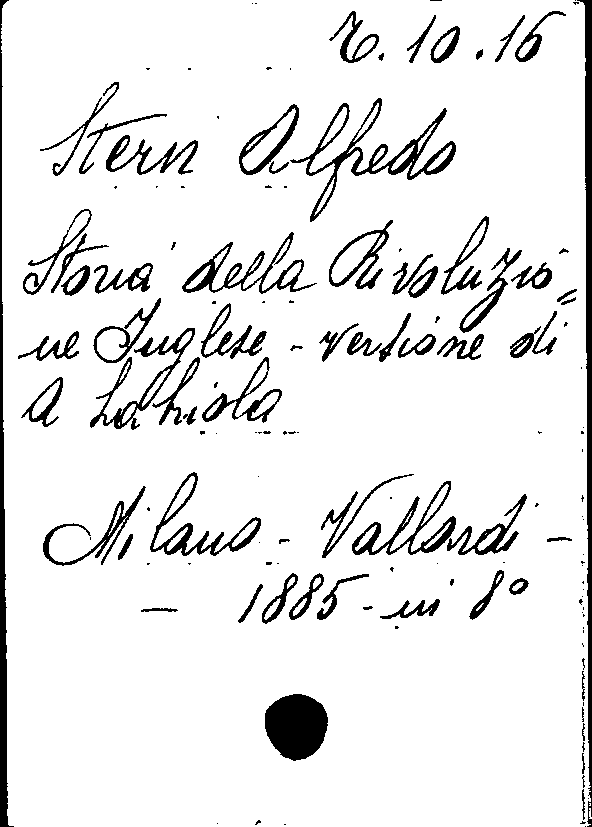 7.10.16
Stern Alfredo
Storia della Rivoluzio=
ne Inglese - versione di
A Labriola
Milano - Vallardi -
- 1885 - in 8°